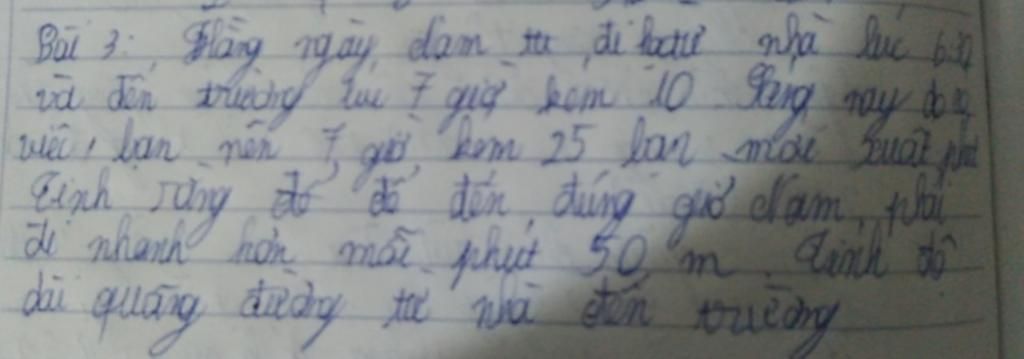 Bài 3: Hằng ngày, Nam từ đi học từ nhà lúc 6:30
và đến trường lúc 7 giờ kém 10. Sáng nay do
việc, bạn nên 7 giờ kém 25 bạn mới xuất phát
Tính rằng để đến đúng giờ Nam phải
đi nhanh hơn mỗi phút 50 m. Tính độ
dài quãng đường từ nhà đến trường